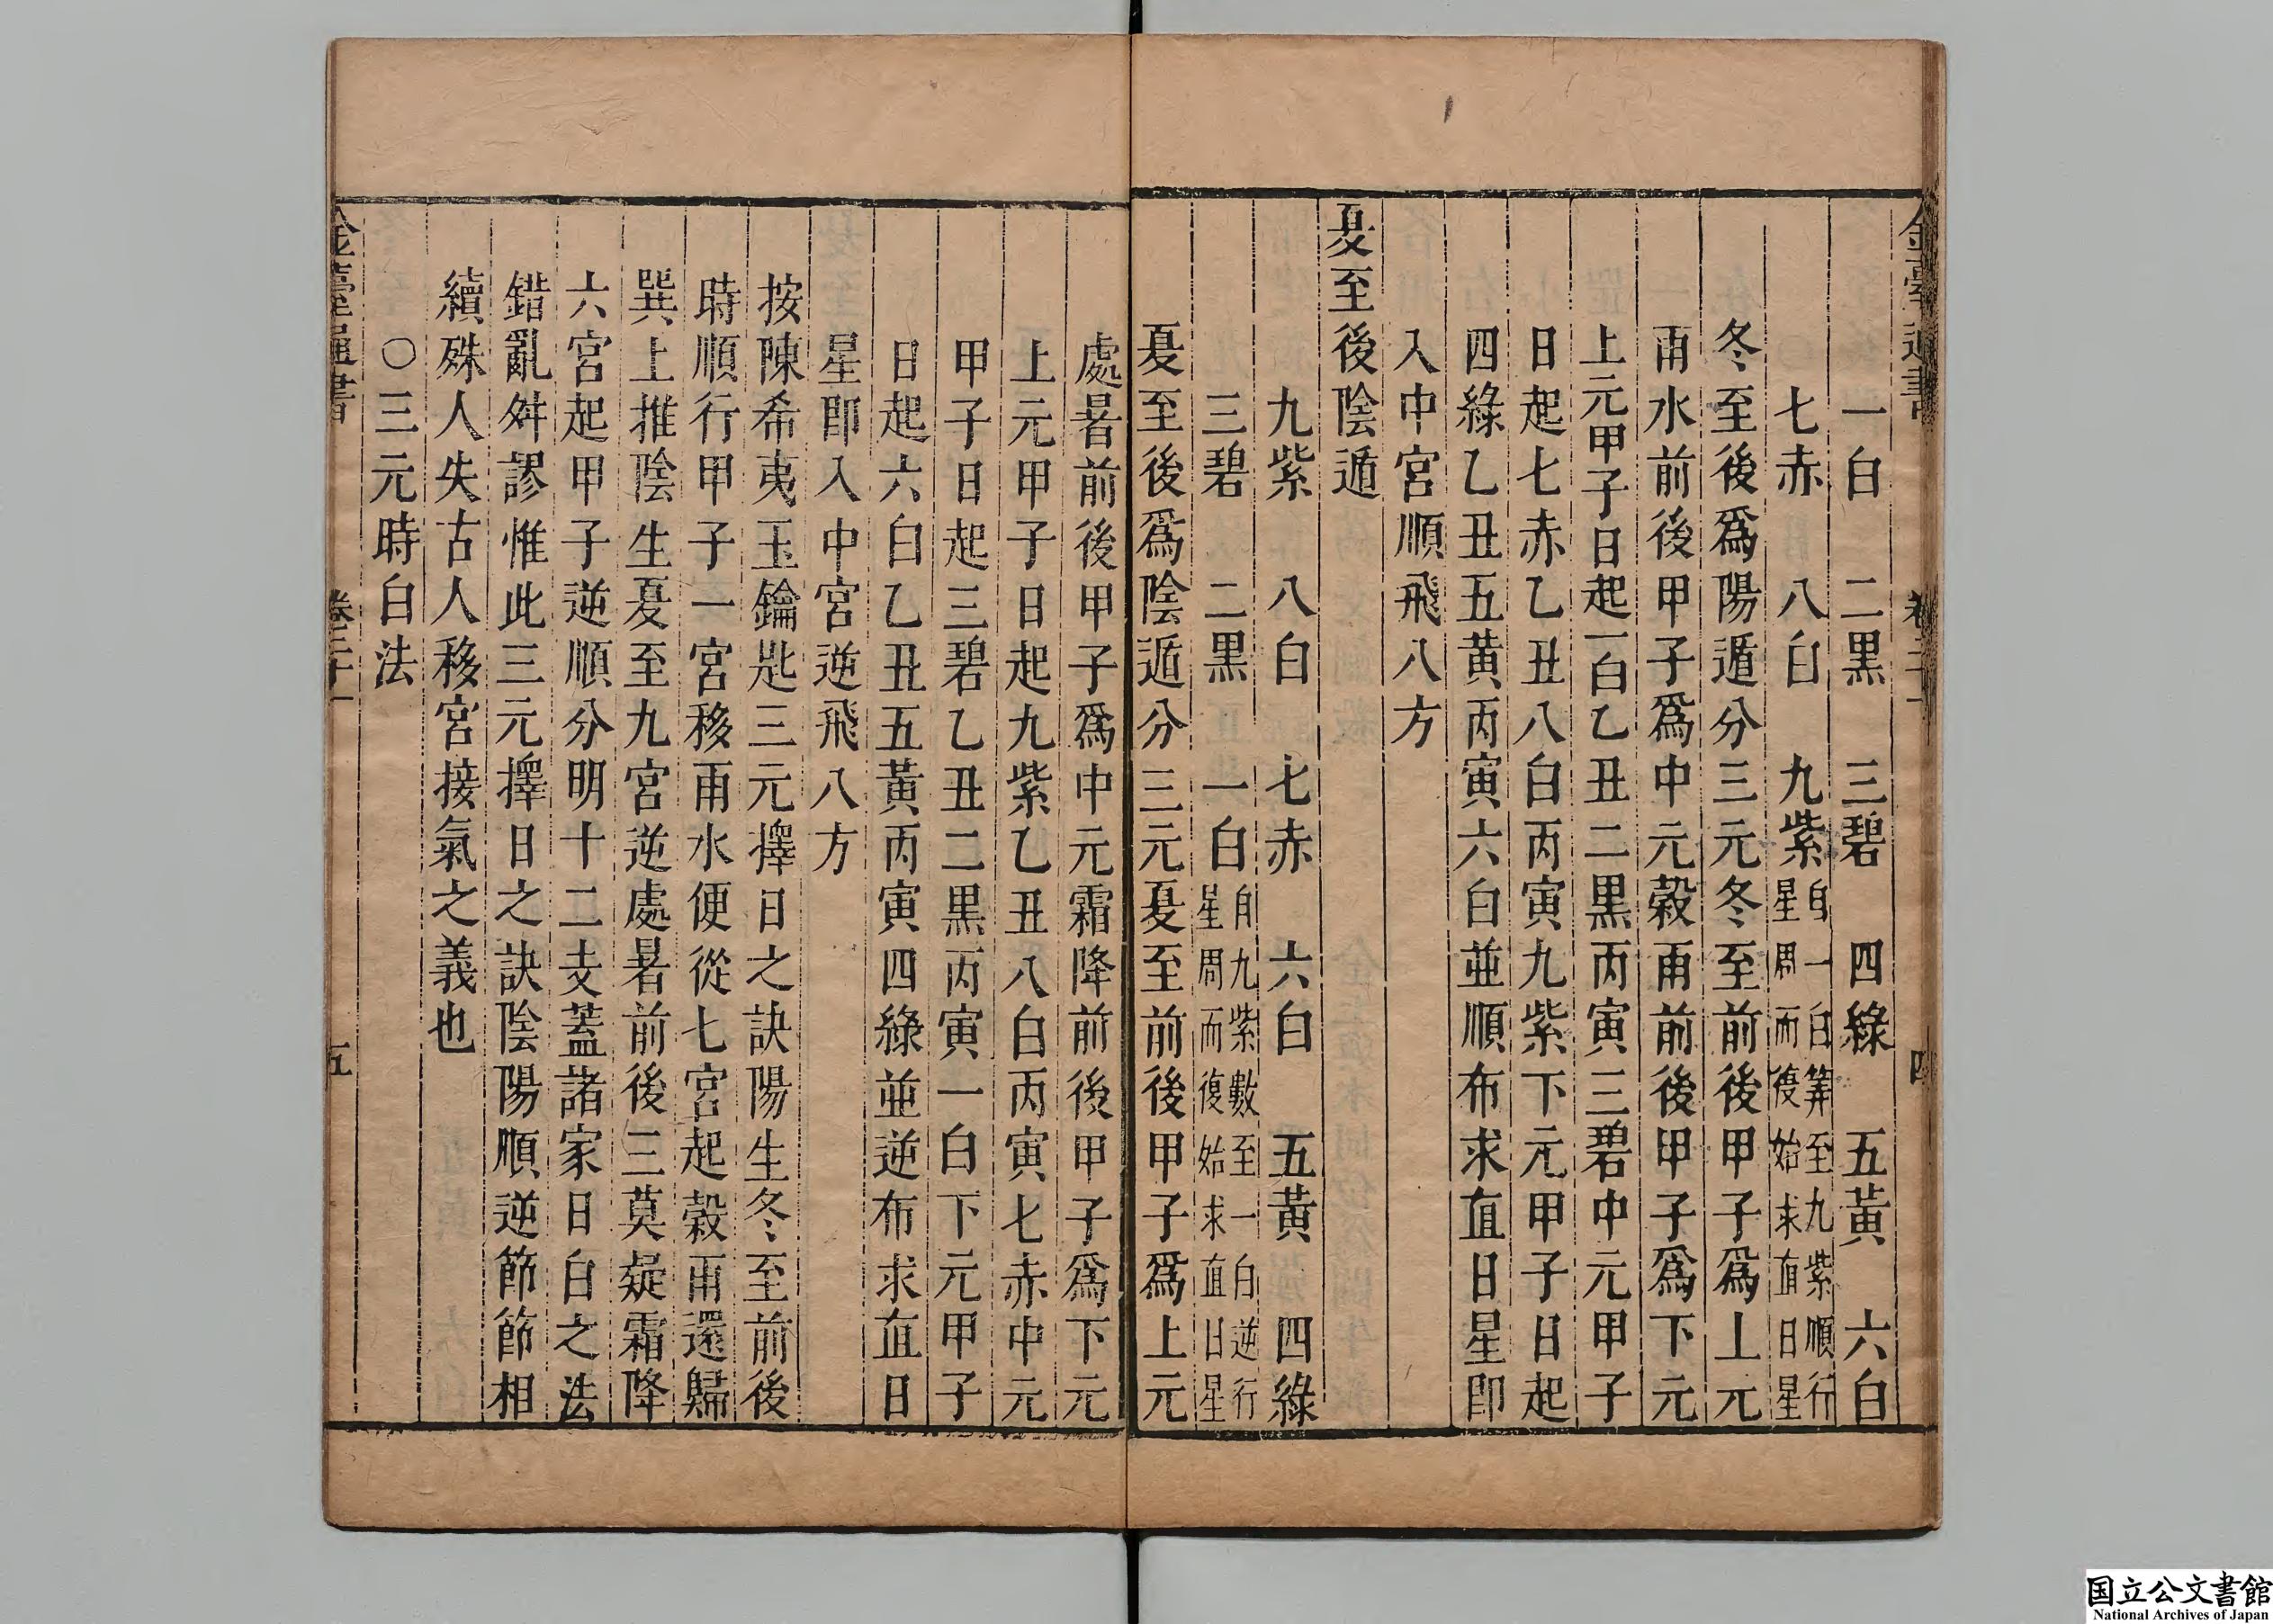 一白　二黑　三碧　四綠　五黃　六白
七赤　八白　九紫自一白筭至九紫順行
星周而復始求直日星
冬至後爲陽遁分三元冬至前後甲子爲上元
雨水前後甲子爲中元穀雨前後甲子爲下元
上元甲子日起一白乙丑二黑丙寅三碧中元甲子
日起七赤乙丑八白丙寅九紫下元甲子日起
四綠乙丑五黃丙寅六白並順布求直日星即
入中宮順飛八方
夏至後陰遁
九紫　八白　七赤　六白　五黃　四綠
三碧　二黑　一白自九紫數至一白逆行
星周而復始求直日星
夏至後爲陰遁分三元夏至前後甲子爲上元
處暑前後甲子爲中元霜降前後甲子爲下元
上元甲子日起九紫乙丑八白丙寅七赤中元
甲子日起三碧乙丑二黑丙寅一白下元甲子
日起六白乙丑五黃丙寅四綠並逆布求直日
星即入中宮逆飛八方
按陳希夷玉鑰匙三元擇日之訣陽生冬至前後
時順行甲子一宮移雨水便從七宮起穀雨還歸
巽上推陰生夏至九宮逆處暑前後三莫疑霜降
六宮起甲子逆順分明十二支蓋諸家日白之法
錯亂舛謬惟此三元擇日之訣陰陽順逆節節相
續殊人失古人移宮接氣之義也
○三元時白法
金臺通書　卷二十一　五
国立公文書館
National Archives of Japan